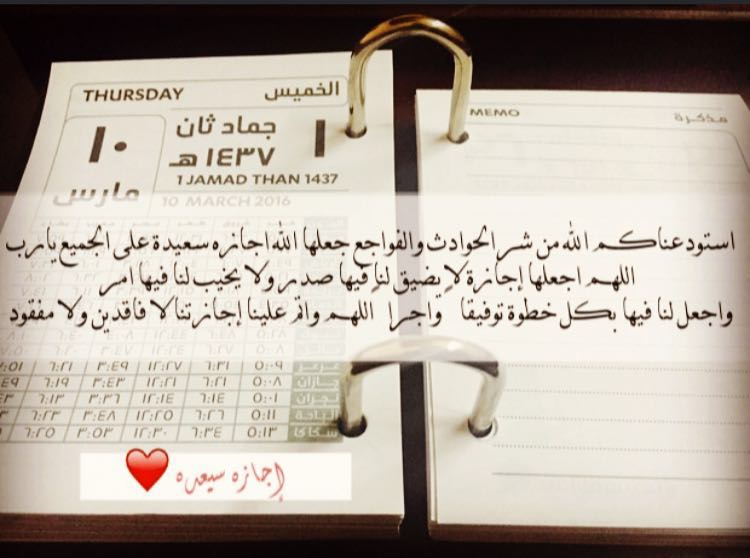 THURSDAY الخميس
MEMO مذكرة
١٠ جماد ثان ١
١٤٣٧ هـ
مارس 1 JAMAD THAN 1437
10 MARCH 2016
استودعناكم الله من شر الحوادث والفواجع جعلها الله اجازه سعيدة على الجميع يارب
اللهم اجعلها إجازة لا يضيق لنا فيها صدر ولا يخيب لنا فيها امر
واجعل لنا فيها بكل خطوة توفيقا واجرا اللهم واتم علينا إجازتنا لا فاقدين ولا مفقود
عرعر ٥:٠٩ ٦:٣١ ١٢:٢٧ ٣:٤٩ ٦:٢١
جازان ٥:٠٨ ٦:٢١ ١٢:٢١ ٣:٤٣ ٦:١٩
نجران ٥:٠١ ٦:١٤ ١٢:١٤ ٣:٣٦ ٦:١٣
الباحة ٥:١١ ٦:٢٦ ١٢:٢٥ ٣:٤٨ ٦:٢٣
سكاكا ٥:١٣ ٦:٣٤ ١٢:٣٠ ٣:٥٣ ٦:٢٥
إجازه سيعده